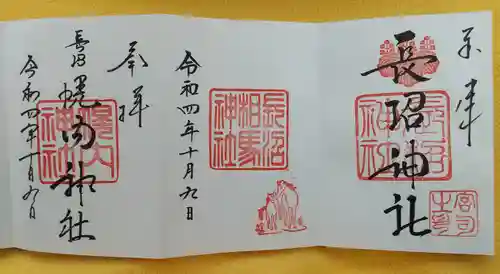 奉拝
長沼神社
長沼神社
宮司之印
長沼相馬神社
令和四年十月九日
奉拝
長沼
幌内神社
幌内神社
令和四年十月九日